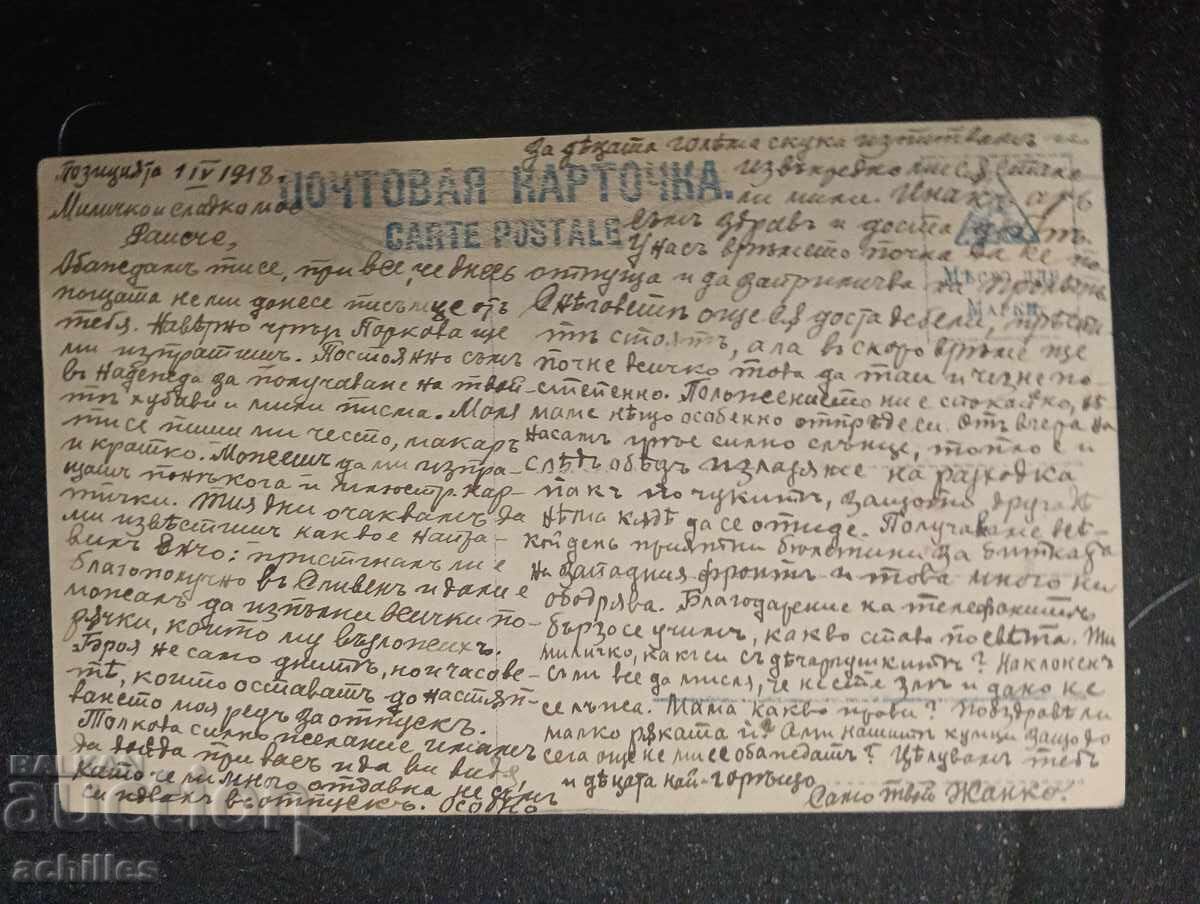 Позиция 1 IV 1918.
ПОЧТОВАЯ КАРТОЧКА.
CARTE POSTALE
Мѣсто для
Марки
Миличко и сладко мое
Раиче,
Обаждамъ ти се, при все, че днесъ
пощата не ми донесе писъмце отъ
тебя. Навѣрно чрѣзъ Поркова ще
ми изпратишъ. Постоянно съмъ
въ надежда за получаване на твои-
тѣ хубави и мили писма. Моля
ти се пиши ми често, макаръ
и кратко. Можешъ да ми изпра-
щашъ понѣкога и илюстр. кар-
тички. Тия дни очаквамъ да
ми извѣстишъ какво е напра-
вилъ Енчо: пристигналъ ли е
благополучно въ Сливенъ и дали е
можалъ да изпълни всички по-
рѫчки, които му възложихъ.
Броя не само днитѣ, но и часове-
тѣ, които оставатъ до настѫп-
ването моя редъ за отпускъ.
Толкова силно желание имамъ
да дойда при васъ и да ви видя,
като че ли много отдавна не съмъ
си идвалъ въ отпускъ. Особно
за дѣцата голѣма скука изпитвамъ
извънредно ми сѫ стана
ли мили. Инакъ азъ
съмъ здравъ и доста
У насъ врѣмето почна да се по
отпуща и да заприличва на пролѣть
Снѣговетѣ още сѫ доста дебели,
тѣ стоятъ, ала въ скоро врѣме ще
почне всичко това да таи и чезне по-
степенно. Положението ни е спокойно, нѣ-
маме нѣщо особенно отпрѣде си. Отъ вчера на-
насамъ грѣе силно слънце, топло е и
слѣдъ обѣдъ излядяже на разходка
пакъ по чукитѣ, защото другадѣ
нѣма кадѣ да се отиде. Получаваме всѣ-
кой день приятни бюлетини за битката
на западния фронтъ и това много ни
ободрява. Благодарение на телефонитѣ
бързо се учимъ, какво става по свѣта. Ти
миличко, какъ си съ дѣчурлушкитѣ? Наклоненъ
съмъ все да мисля, че не сте злѣ и дано не
се лъжа. Мама какво прови? Поздравѣ ли
малко рѫката ѝ? Ами нашитѣ кумци защо до
сега още не ми се обаждатъ? Цѣлувамъ тебъ
и дѣцата най-горѣщо
Само твой Жанко.
BALKAN
auction
achilles